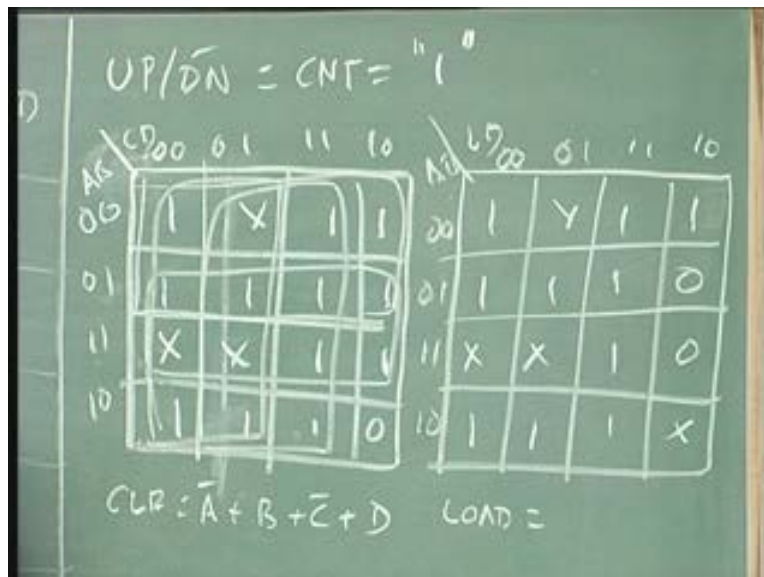 UP/D̄N = CNT = "1"
D
CD 00 01 11 10
AB
00 1 X 1 1
01 1 1 1 1
11 X X 1 1
10 1 1 1 0
CD 00 01 11 10
AB
00 1 X 1 1
01 1 1 1 0
11 X X 1 0
10 1 1 1 X
CLR = Ā + B + C̄ + D
LOAD =